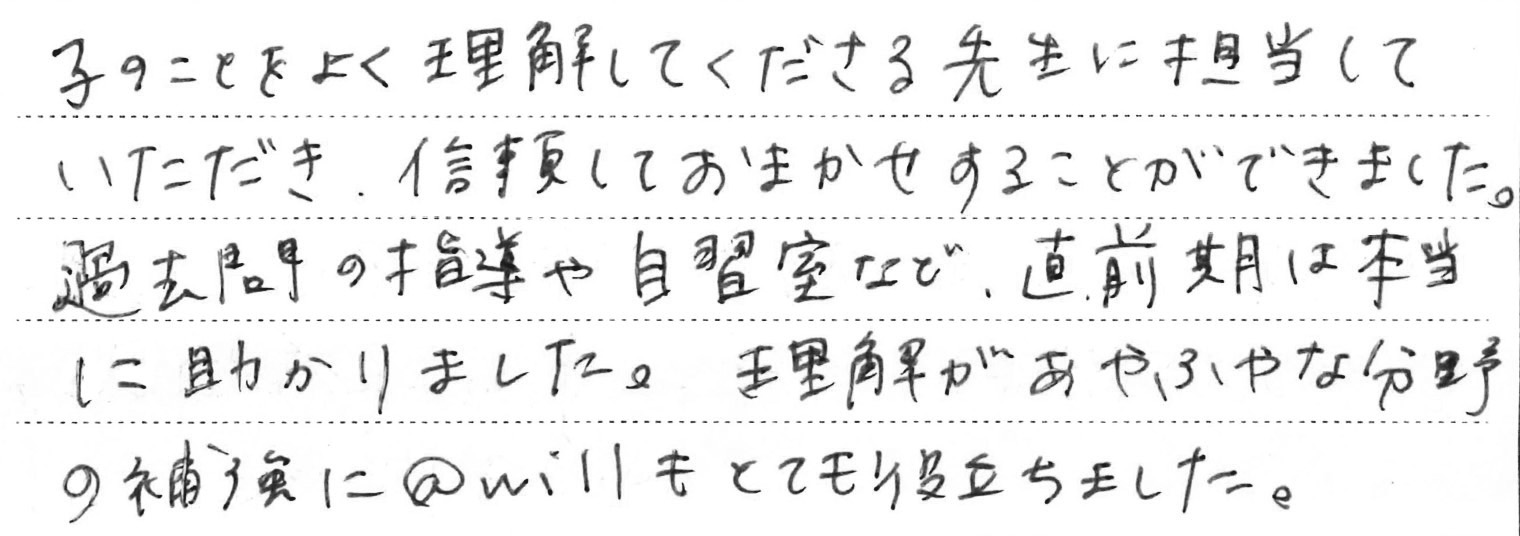 子のことをよく理解してくださる先生に担当して
いただき、信頼しておまかせすることができました。
過去問の指導や自習室など、直前期は本当
に助かりました。理解があやふやな分野
の補強に@willもとても役立ちました。